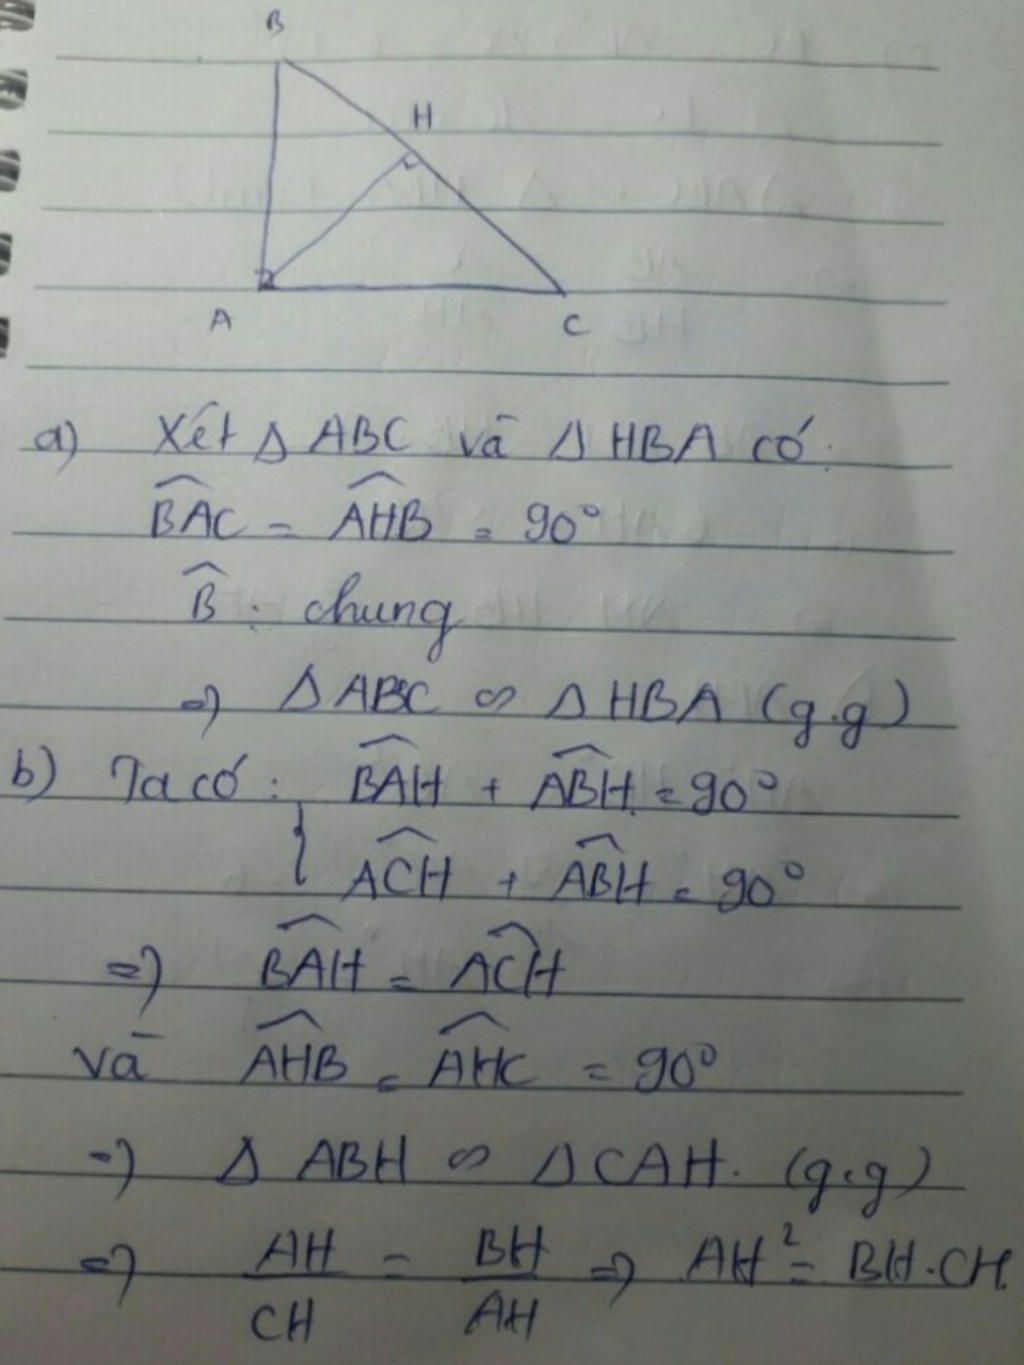 B
H
A
C
a) Xét Δ ABC và Δ HBA có:
$\widehat{BAC}$ = $\widehat{AHB}$ = 90°
$\widehat{B}$ : chung
=> Δ ABC ∽ Δ HBA (g.g)
b) Ta có : { $\widehat{BAH}$ + $\widehat{ABH}$ = 90°
$\widehat{ACH}$ + $\widehat{ABH}$ = 90°
=> $\widehat{BAH}$ = $\widehat{ACH}$
và $\widehat{AHB}$ = $\widehat{AHC}$ = 90°
=> Δ ABH ∽ Δ CAH. (g.g)
=> $\frac{AH}{CH}$ = $\frac{BH}{AH}$ => AH² = BH.CH